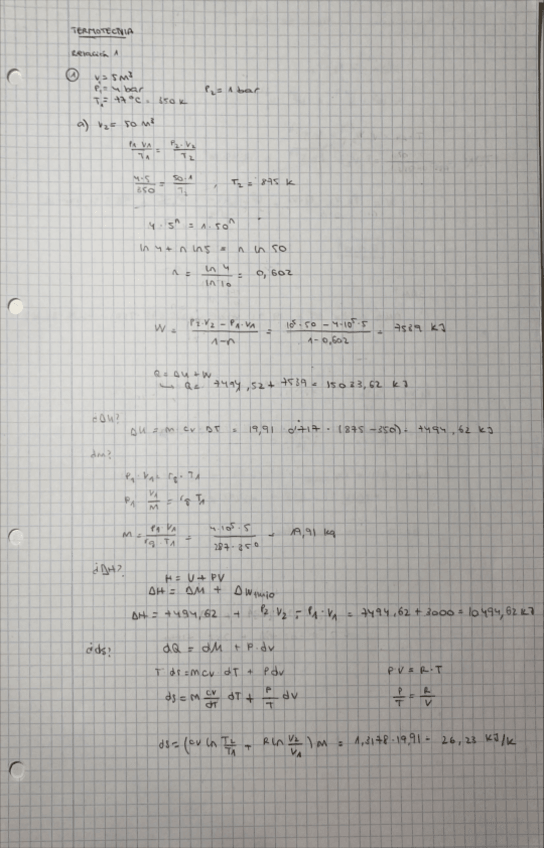 TERMOTECNIA
Ejercicio 1
① V₁ = 5 m³
P₁ = 4 bar P₂ = 1 bar
T₁ = 77 °C = 350 K
a) V₂ = 50 m³
P₁ V₁ / T₁ = P₂ · V₂ / T₂
4 · 5 / 350 = 50 · 1 / T₂ , T₂ = 875 K
4 · 5ⁿ = 1 · 50ⁿ
ln 4 + n ln 5 = n ln 50
n = ln 4 / ln 10 = 0,602
W = P₂ · V₂ − P₁ · V₁ / 1 − n = 10⁵ · 50 − 4 · 10⁵ · 5 / 1 − 0,602 = 7539 kJ
Q = ΔU + W
Q = 7494,52 + 7539 = 15033,62 kJ
¿ΔU?
ΔU = m cv ΔT = 19,91 0'717 · (875 − 350) = 7494,62 kJ
¿m?
P₁ · V₁ = rg · T₁
P₁ V₁ / M = rg T₁
M = P₁ V₁ / rg · T₁ = 4 · 10⁵ · 5 / 287 · 350 = 19,91 kg
¿ΔH?
H = U + PV
ΔH = ΔM + ΔW
ΔH = 7494,62 + P₂ · V₂ − P₁ · V₁ = 7494,62 + 3000 = 10494,62 kJ
¿ds?
dQ = dM + P · dv
T ds = m cv dT + P dv P V = R · T
ds = m cv / dT dT + P / T dv P / T = R / V
ds = (cv ln T₂ / T₁ + R ln V₂ / V₁) m = 1,3178 · 19,91 = 26,23 kJ/k